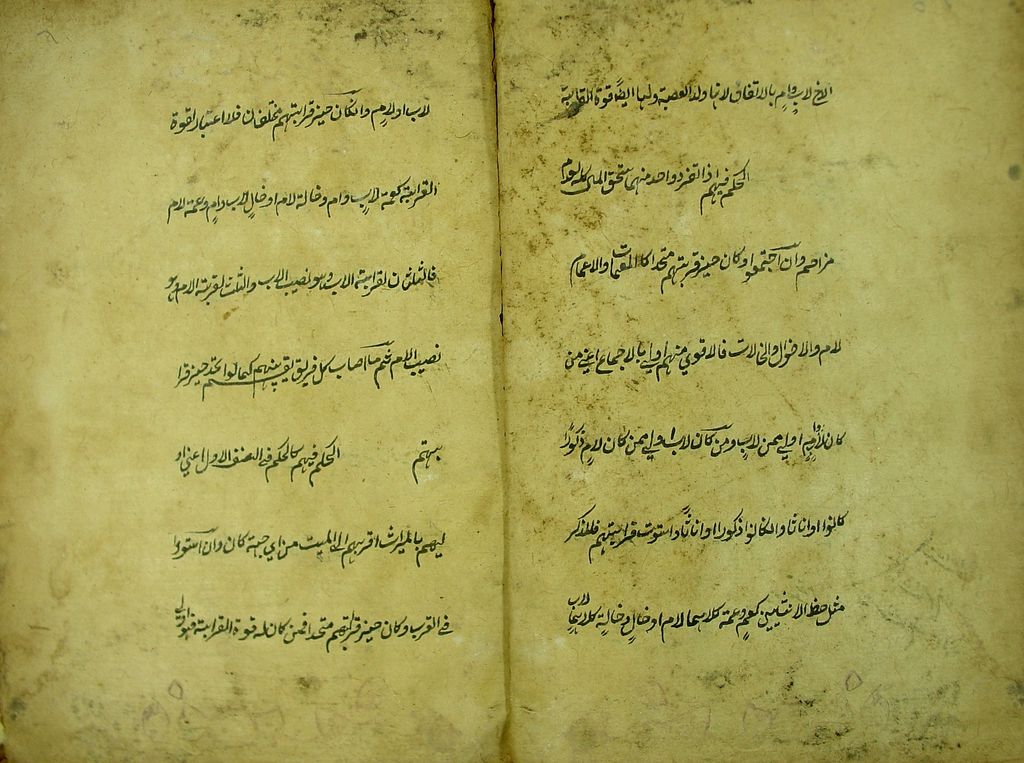 الاخ لاب وام بالاتفاق لانها ولد العصبة ولها ايضًا قوة القرابة
الحكم فيهم اذا انفرد واحد منهم استحق المال كله لعدم
مزاحم وان اجتمعوا وكان حيز قرابتهم متحدا كالعمات والاعمام
لام والاخوال والخالات فالاقوى منهم اولى بالاجماع اعني من
كان لاب وام اولى ممن لاب ومن كان لاب اولى ممن كان لام ذكورًا
كانوا او اناثا وان كانوا ذكورا او اناثًا واستوت قرابتهم فللذكر
مثل حظ الانثيين كعم وعمة كلاهما لام او خال وخالة كلاهما لاب
لاب او لام وان كان حيز قرابتهم مختلفا فلا اعتبار لقوة
القرابة كعمة لاب وام وخالة لام او خال لاب وام وعمة لام
فالثلثان لقرابة الاب وهو نصيب الاب والثلث لقرابة الام وهو
نصيب الام ثم ما اصاب كل فريق يقسم بينهم كما لو اتحد حيز قرا
بتهم الحكم فيهم كالحكم في الصنف الاول اعني او
ليهم بالميراث اقربهم الى الميت من اي جهة كان وان استووا
في القرب وكان حيز قرابتهم متحدا فمن كان له قوة القرابة فهو اولى